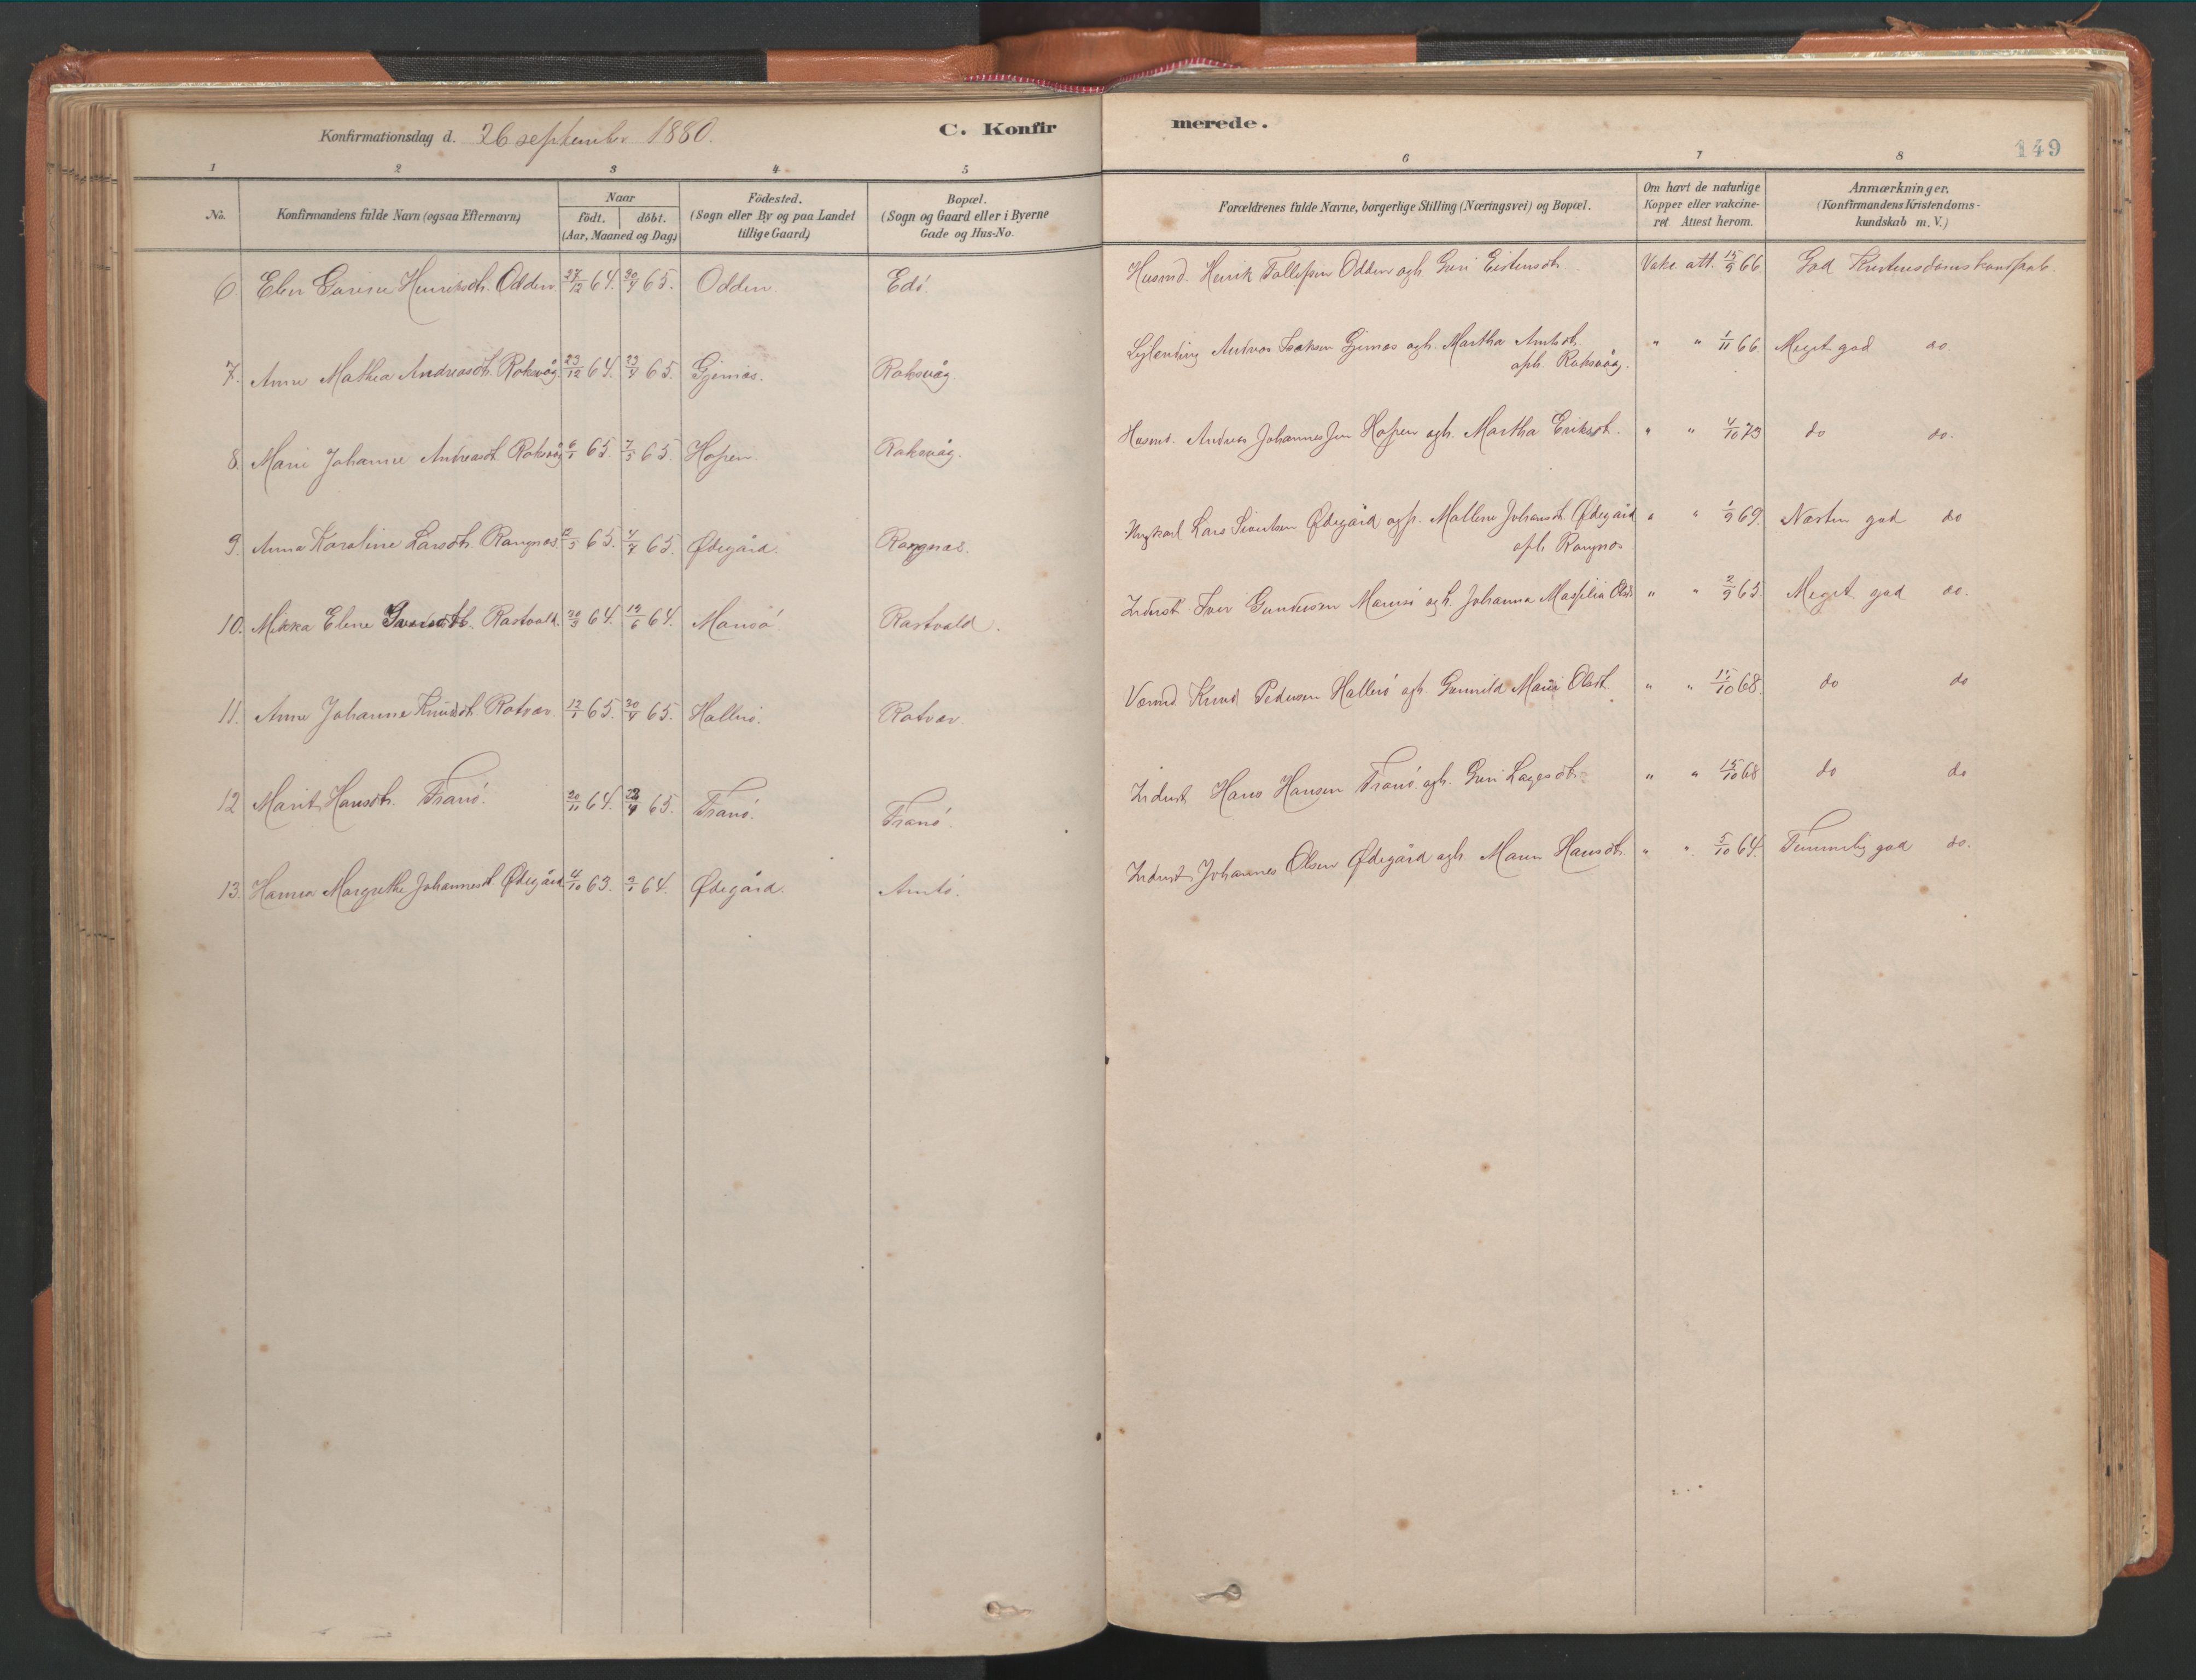 Konfirmationsdag d. 26 september 1880. C. Konfir merede. 149
1 2 3 4. 5 6 7 8
No. Konfirmandens fulde Navn (ogsaa Efternavn) Naar födt. döbt. (Aar, Maaned og Dag) Födested. (Sogn eller By og paa Landet tillige Gaard) Bopæl. (Sogn og Gaard eller i Byerne Gade og Hus-No. Forældrenes fulde Navne, borgerlige Stilling (Næringsvei) og Bopæl. Om havt de naturlige Kopper eller vakcineret Attest herom. Anmærkninger. (Konfirmandens Kristendomskundskab m. V.)
6 Elen Gurine Henriksdt. Odden 27/12 64. 30/4 65. Odden Edö. Husmd. Henrik Tollefsen Odden og h. Guri Eistensdt. Vakc. att. 15/9 66 God Kristendomskundskab.
7. Anne Mathea Andreasdt. Roksvåg 23/12 64. 23/4 65. Gjennæs. Roksvåg. Andreas Isaksen Gjennæs og h. Martha Arntsdt.
oph. Roksvåg. " " 1/11 66 Meget god do.
8. Marie Johanne Andreasdt. Roksvåg 6/1 65. 7/5 65. Hopen Roksvåg. Husmd. Andreas Johannesen Hopen og h. Martha Eriksdt. " " 4/10 73 do do.
9. Anna Karoline Larsdt. Rangnæs 12/3 65. 4/7 65. Ødegård. Rangnæs. Ungkarl Lars Sivertsen Ødegård og p. Mallene Johansdt. Ødegård
oph. Rangnæs " " 1/9 69. Næsten god do
10. Mikka Elene Iversdt. Rastvold. 30/3 64. 19/6 64. Mansö. Rastvold. Inderst Iver Gundersen Mansö og h. Johanna Massilia Olsdt " " 2/9 65. Meget god do.
11. Anne Johanne Knudsdt. Rotvær. 12/1 65. 30/4 65. Hallerö. Rotvær. Knud Pedersen Hallerö og h. Gunnild Marie Olsdt. " " 11/10 68. do do
12 Marit Hansdt. Tranö. 20/11 64. 23/4 65. Tranö. Tranö. Inderst Hans Hansen Tranö og h. Guri Lagesdt. " " 15/10 68 do do
13. Hanna Margrethe Johannesdt. Ødegård 4/10 63. 3/1 64. Ødegård. Arntö. Inderst Johannes Olsen Ødegård og h. Maren Hansdt. " " 5/10 64. Temmelig god do.